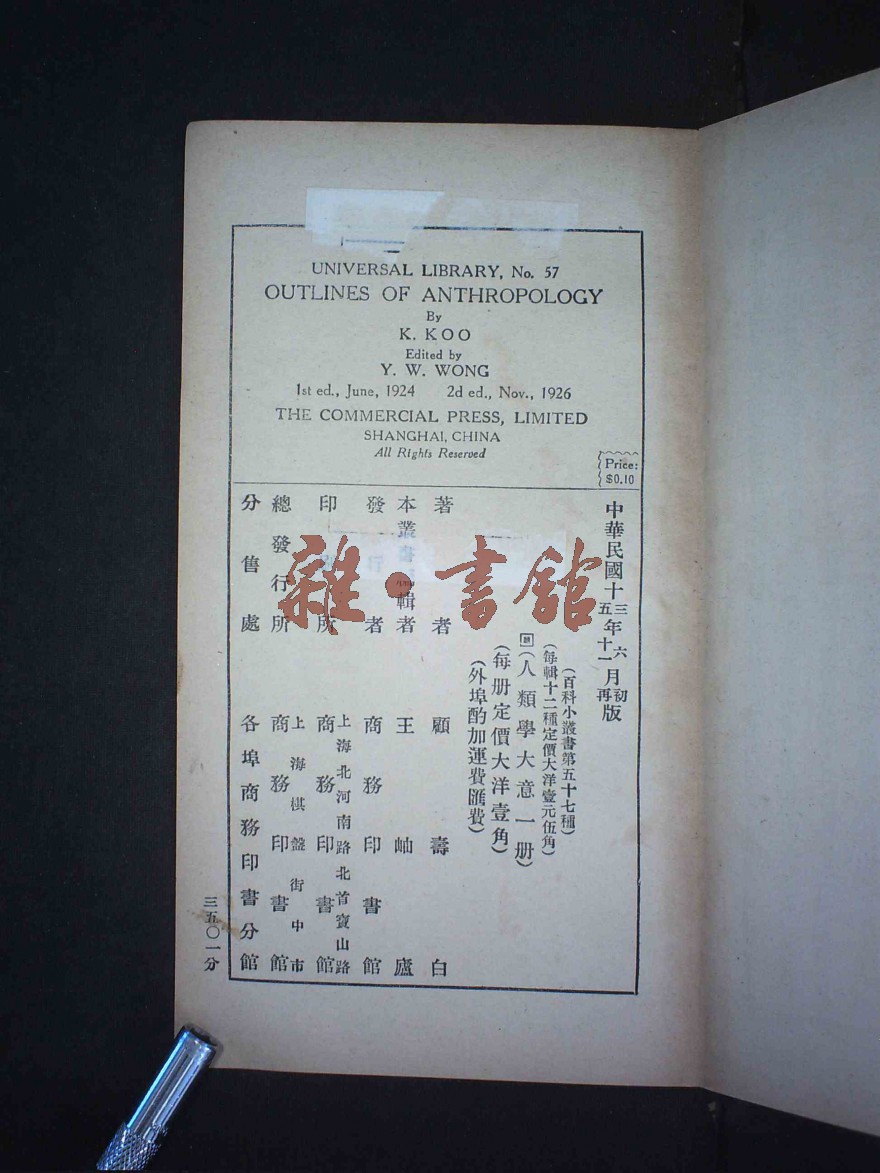 UNIVERSAL LIBRARY, No. 57
OUTLINES OF ANTHROPOLOGY
By
K. KOO
Edited by
Y. W. WONG
1st ed., June, 1924 2d ed., Nov., 1926
THE COMMERCIAL PRESS, LIMITED
SHANGHAI, CHINA
All Rights Reserved
Price:
$0.10
中華民國十三年六月初版
五年十一月再版
(百科小叢書第五十七種)
(每輯十二種定價大洋壹元伍角)
(人類學大意一册)
(每册定價大洋壹角)
(外埠酌加運費匯費)
著者 顧壽白
本叢書輯者 王岫廬
發者 商務印書館
上海北河南路北首寶山路
印所 商務印書館
上海棋盤街中市
總發行所 商務印書館
分售處 各埠商務印書分館
三五〇一分
雜·書館